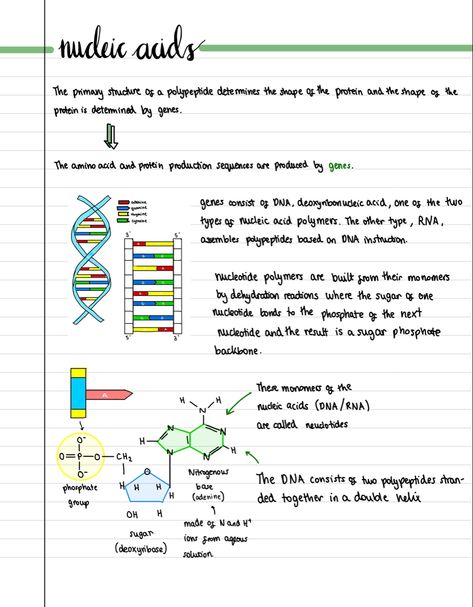 nucleic acids
The primary structure of a polypeptide determines the shape of the protein and the shape of the
protein is determined by genes.
The amino acid and protein production sequences are produced by genes.
adenine
guanine
thymine
cytosine
genes consist of DNA, deoxyribonucleic acid, one of the two
types of nucleic acid polymers. The other type, RNA,
assembles polypeptides based on DNA instruction.
nucleotide polymers are built from their monomers
by dehydration reactions where the sugar of one
nucleotide bonds to the phosphate of the next
nucleotide and the result is a sugar phosphate
backbone.
A
These monomers of the
nucleic acids (DNA/RNA)
are called neudotides
H H
N
N N
H H
N N
O⁻
O=P-O-CH₂
O⁻
O
H H
H H
OH H
phosphate
group
sugar
(deoxyribose)
Nitrogenous
base
(adenine)
made of N and H⁺
ions from aqeous
solution
The DNA consists of two polypeptides stran-
ded together in a double helix